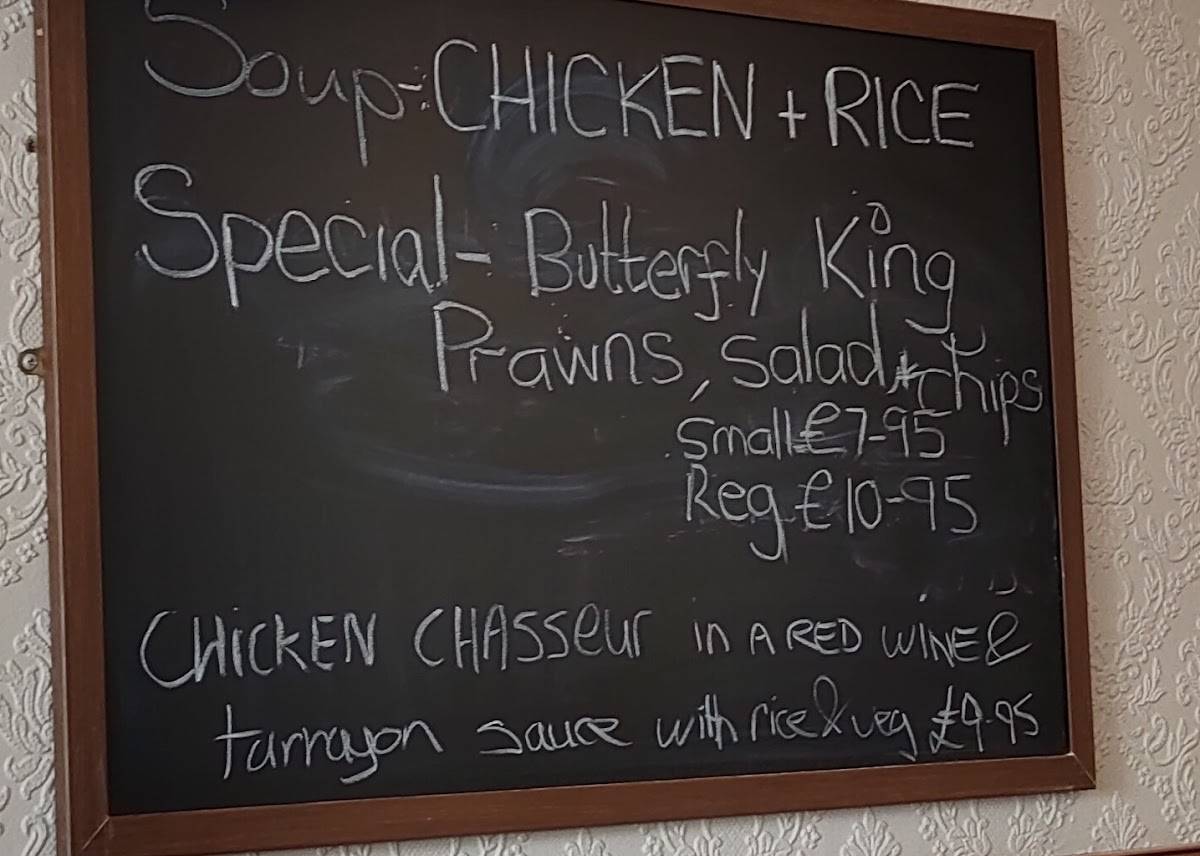 Soup-: CHICKEN + RICE
Special-: Butterfly King
Prawns, salad, + chips
Small £7-95
Reg £10-95
CHicKEN CHASSEUR in A RED WINE &
tarrayon sauce with rice & veg £9-95